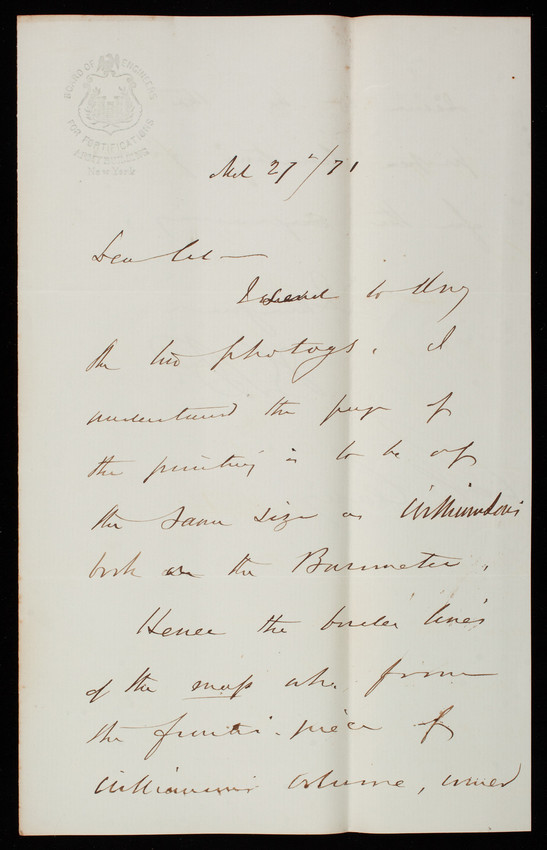 BOARD OF ENGINEERS
FOR FORTIFICATIONS
ARMY BUILDING
New York
Mch 27th/71
Dear Col —
I send to day
the two photogs. I
understand the page of
the printing is to be of
the same size as Williamson's
book on the Barometer.
Hence the border lines
of the map wh. forms
the frontis-piece of
Williamson's volume, used